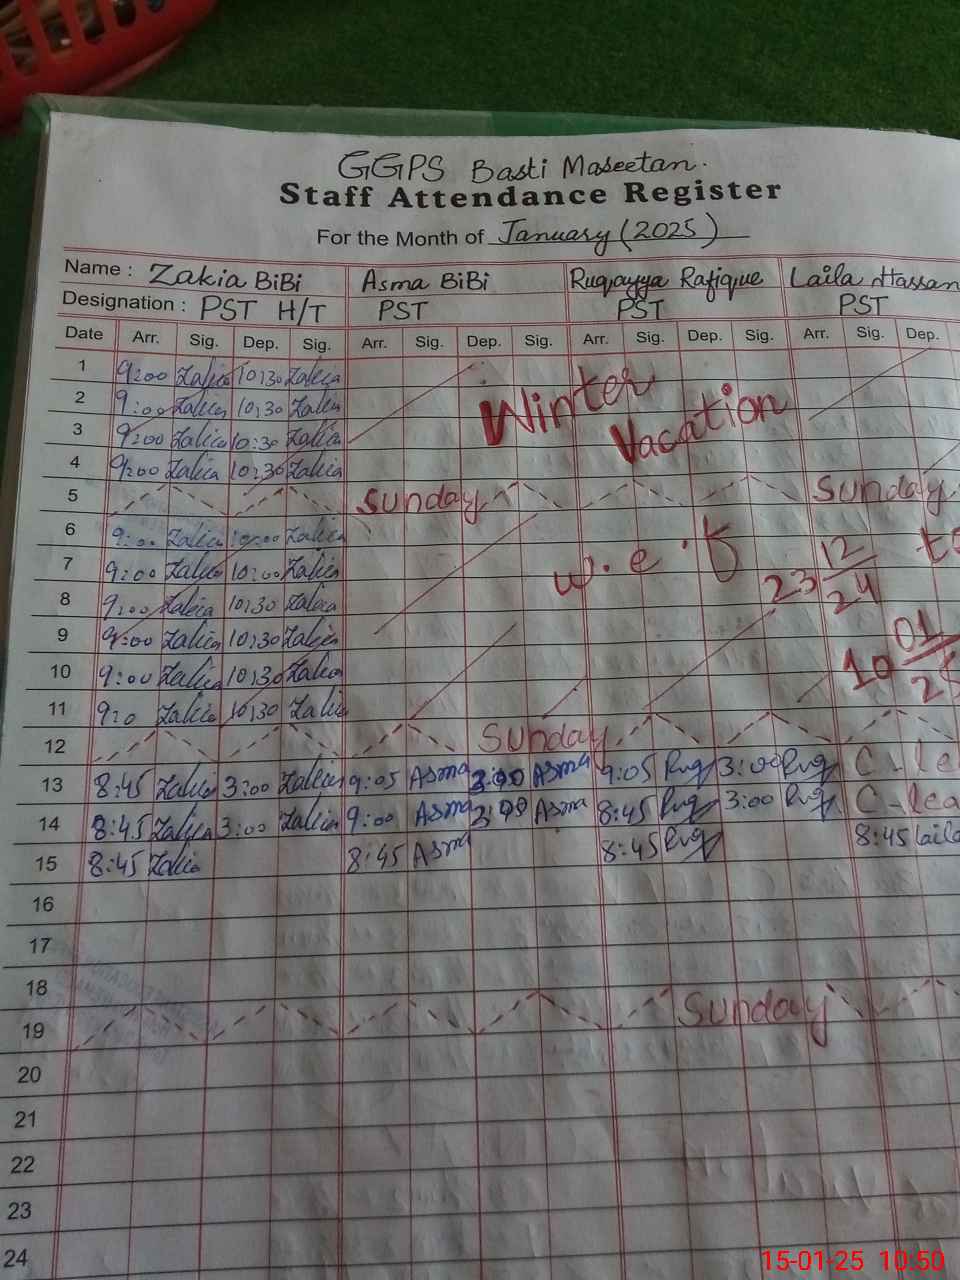 GGPS Basti Maseetan.
Staff Attendance Register
For the Month of January (2025)
Name : Zakia BiBi Asma BiBi Ruqayya Rafique Laila Hassan
Designation : PST H/T PST PST PST
Date Arr. Sig. Dep. Sig. Arr. Sig. Dep. Sig. Arr. Sig. Dep. Sig. Arr. Sig. Dep.
1 9:00 Zakia 10:30 Zakia
2 9:00 Zakia 10:30 Zakia Winter
3 9:00 Zakia 10:30 Zakia Vacation
4 9:00 Zakia 10:30 Zakia
5 Sunday Sunday
6 9:00 Zakia 10:00 Zakia
7 9:00 Zakia 10:00 Zakia w.e.f 23 12/24 to
8 9:00 Zakia 10:30 Zakia
9 9:00 Zakia 10:30 Zakia
10 9:00 Zakia 10:30 Zakia 10 01/25
11 9:0 Zakia 10:30 Zakia
12 Sunday
13 8:45 Zakia 3:00 Zakia 9:05 Asma 3:00 Asma 9:05 Ruq 3:00 Ruq C-lea
14 8:45 Zakia 3:00 Zakia 9:00 Asma 3:00 Asma 8:45 Ruq 3:00 Ruq C-lea
15 8:45 Zakia 8:45 Asma 8:45 Ruq 8:45 laila
16
17
18
19 Sunday
20
21
22
23
24
15-01-25 10:50